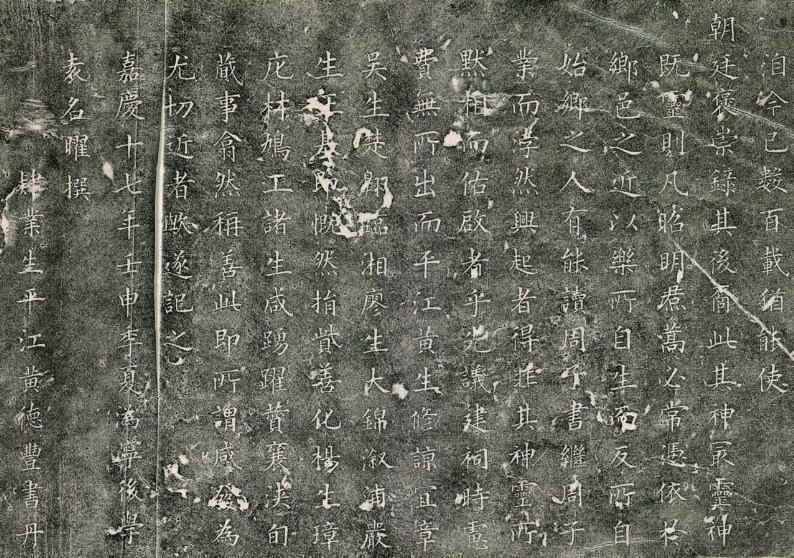 洎今已数百載猶能使
朝廷褒崇錄其後裔此其神最靈神
既靈則凡昭明焄蒿必常憑依於
鄉邑之近以樂所自生而反所自
始鄉之人有能讀周子書繼周子
業而浡然興起者得非其神靈所
默相而佑啟者乎先議建祠時慮
費無所出而平江黃生修諒宜章
吳生楚翹臨湘廖生大錦溆浦嚴
生正基即慨然捐貲善化楊生璋
庀材鳩工諸生咸踴躍贊襄浹旬
蕆事翕然稱善此即所謂感發為
尤切近者歟遂記之
嘉慶十七年壬申季夏溈寧後學
袁名曜撰
肄業生平江黃德豐書丹